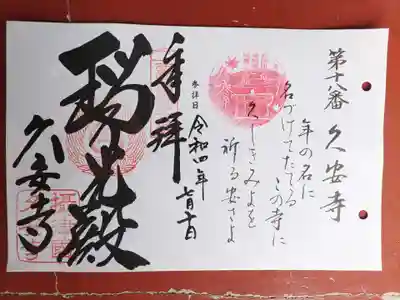 第十八番 久安寺
年の名に
名づけてたてる
この寺に
久しきみよを
祈る安さよ
奉拝
参拝日
令和四年
瑞光殿
久安寺